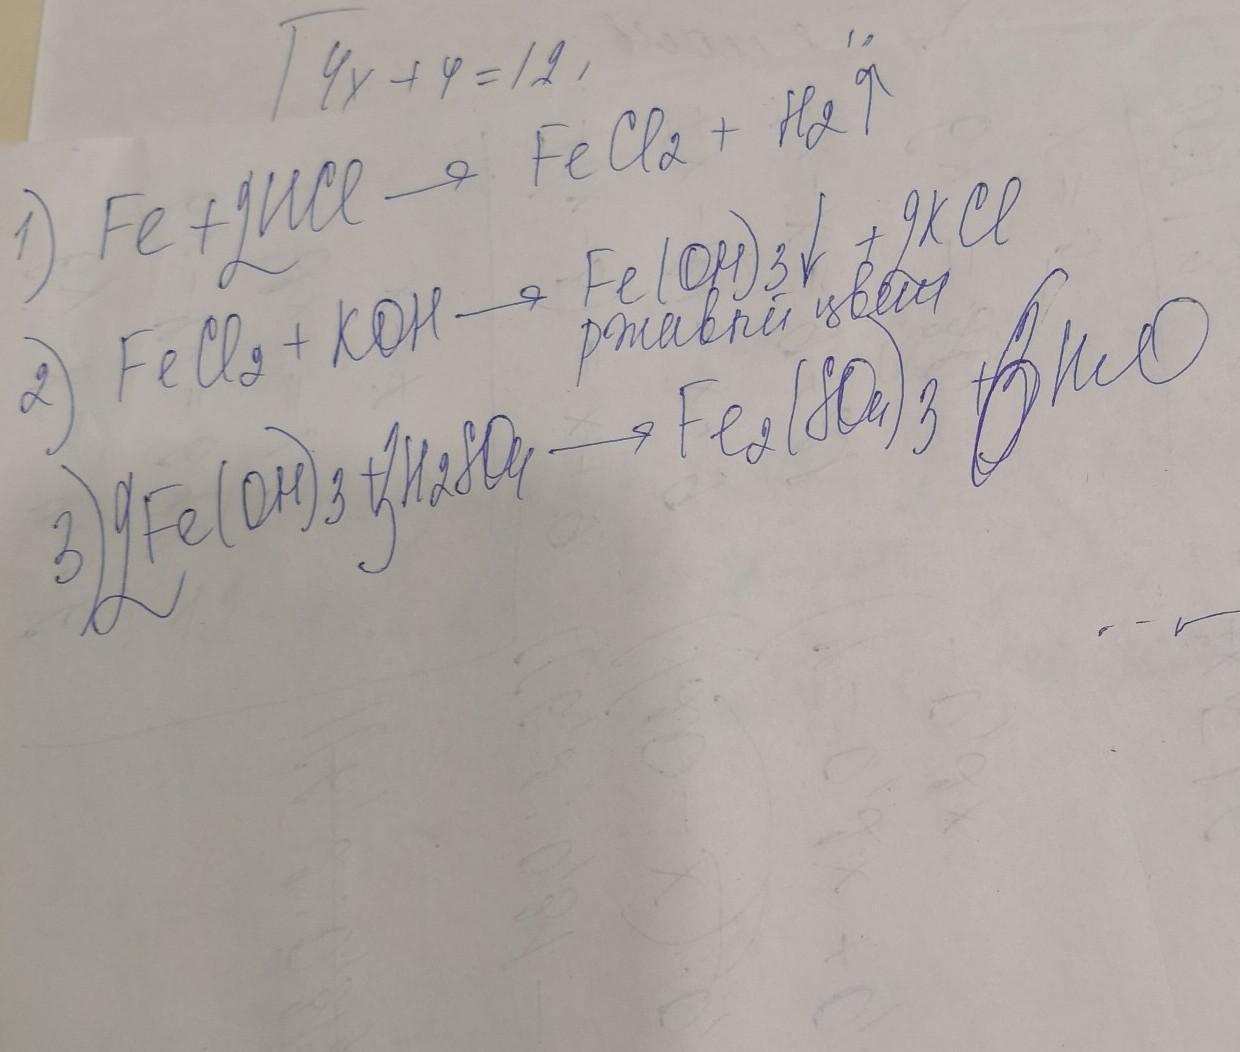 4x + 4 = 12,
1) Fe + 2HCl → FeCl2 + H2↑
2) FeCl2 + KOH → Fe(OH)3↓ + 2KCl
ржавый цвет
3) 2Fe(OH)3 + 3H2SO4 → Fe2(SO4)3 + 6H2O